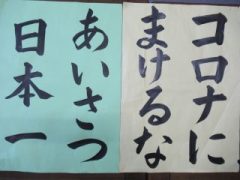 コロナに
まけるな
あいさつ
日本一